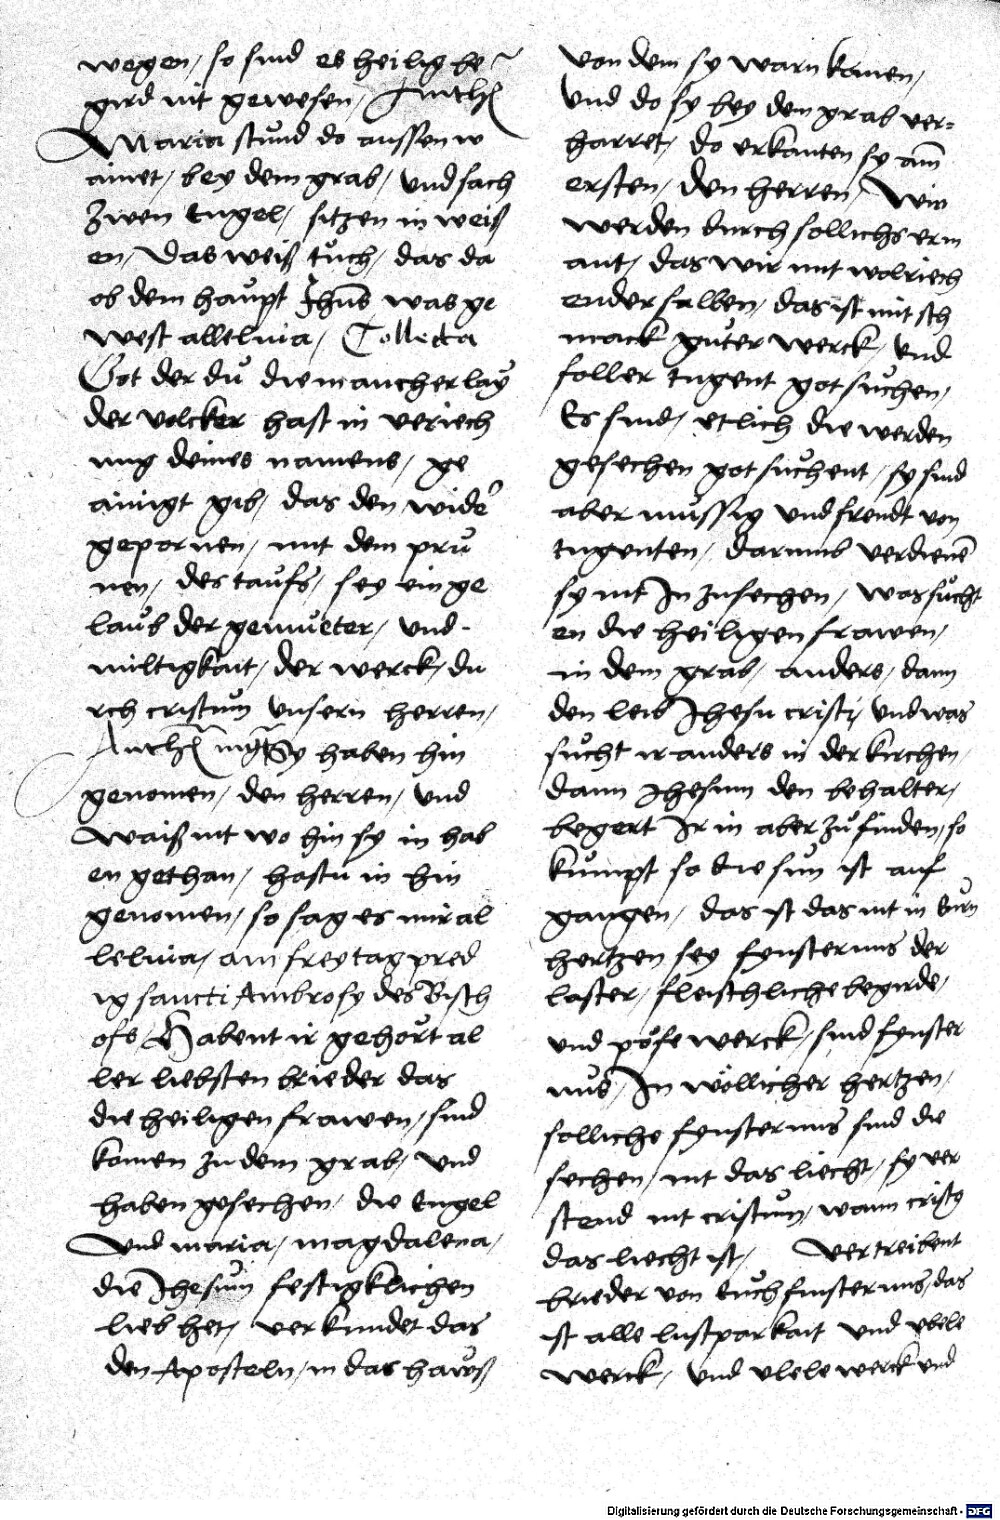 wegen / so sind es heilig be
gird nit gewesen /
Maria stund do aussen w
ainet / bey dem grab / und sach
zwen engel / sitzen in weiß
en / Das weiß tuch / das da
ob dem haupt Jhus was ge
west alleluia / Collecta
Got der du die mancherlay
der volcker hast in veriech
ung deines namens / ge
ainigt gib / das den wide
gepornen / mit dem pru
nen / des taufs / sey ein ge
laub der gemueter / und
miltigkait / der werck / du
rch cristum unsern herren /
Sy haben hin
genomen / den herren / und
waiß nit wo hin sy in hab
en gethan / hastu in hin
genomen / so sag es mir al
leluia / am freytag pred
ig sancti Ambrosy des Bisch
ofs / Habent ir gehört al
ler liebsten brieder das
die heiligen frawen / sind
komen zu dem grab / und
haben gesechen / die engel
Und maria / magdalena /
die Jhesum festigklichen
lieb het / verkundet das
den Aposteln / in das hauß
von dem sy warn komen /
Und do sy bey dem grab ver=
harret / do erkanten sy am
ersten / den herren / Wir
werden durch sollichs erm
ant / das wir mit wolriech
ender salben / das ist mit sch
mack guter werck / und
foller tugent got suchen /
Es sind / etlich die werden
gesechen got suchent / sy sind
aber mussig und frendt von
tugenten / darumb verdienē
sy nit In zusechen / was sucht
en die heiligen frawen /
in dem grab / anders / dann
den leib Jhesu cristi / Und was
sucht ir anders in der kirchen /
dann Jhesum den behalter /
begert Ir in aber zu finden / so
kumpt so die sun ist auf
gangen / das ist das nit in eurn
hertzen sey fynsternus der
laster / fleischliche begirde /
und pöse werck / sind fynster
nus / In wöllicher hertzen /
solliche fynsternus sind die
sechen / nit das liecht / sy ver
stend nit cristum / wann cristus
das liecht ist / Vertreibent
brieder von euch finsternus / das
ist alle lustparkait und ubele
werck / und ubele werck und
Digitalisierung gefördert durch die Deutsche Forschungsgemeinschaft - DFG